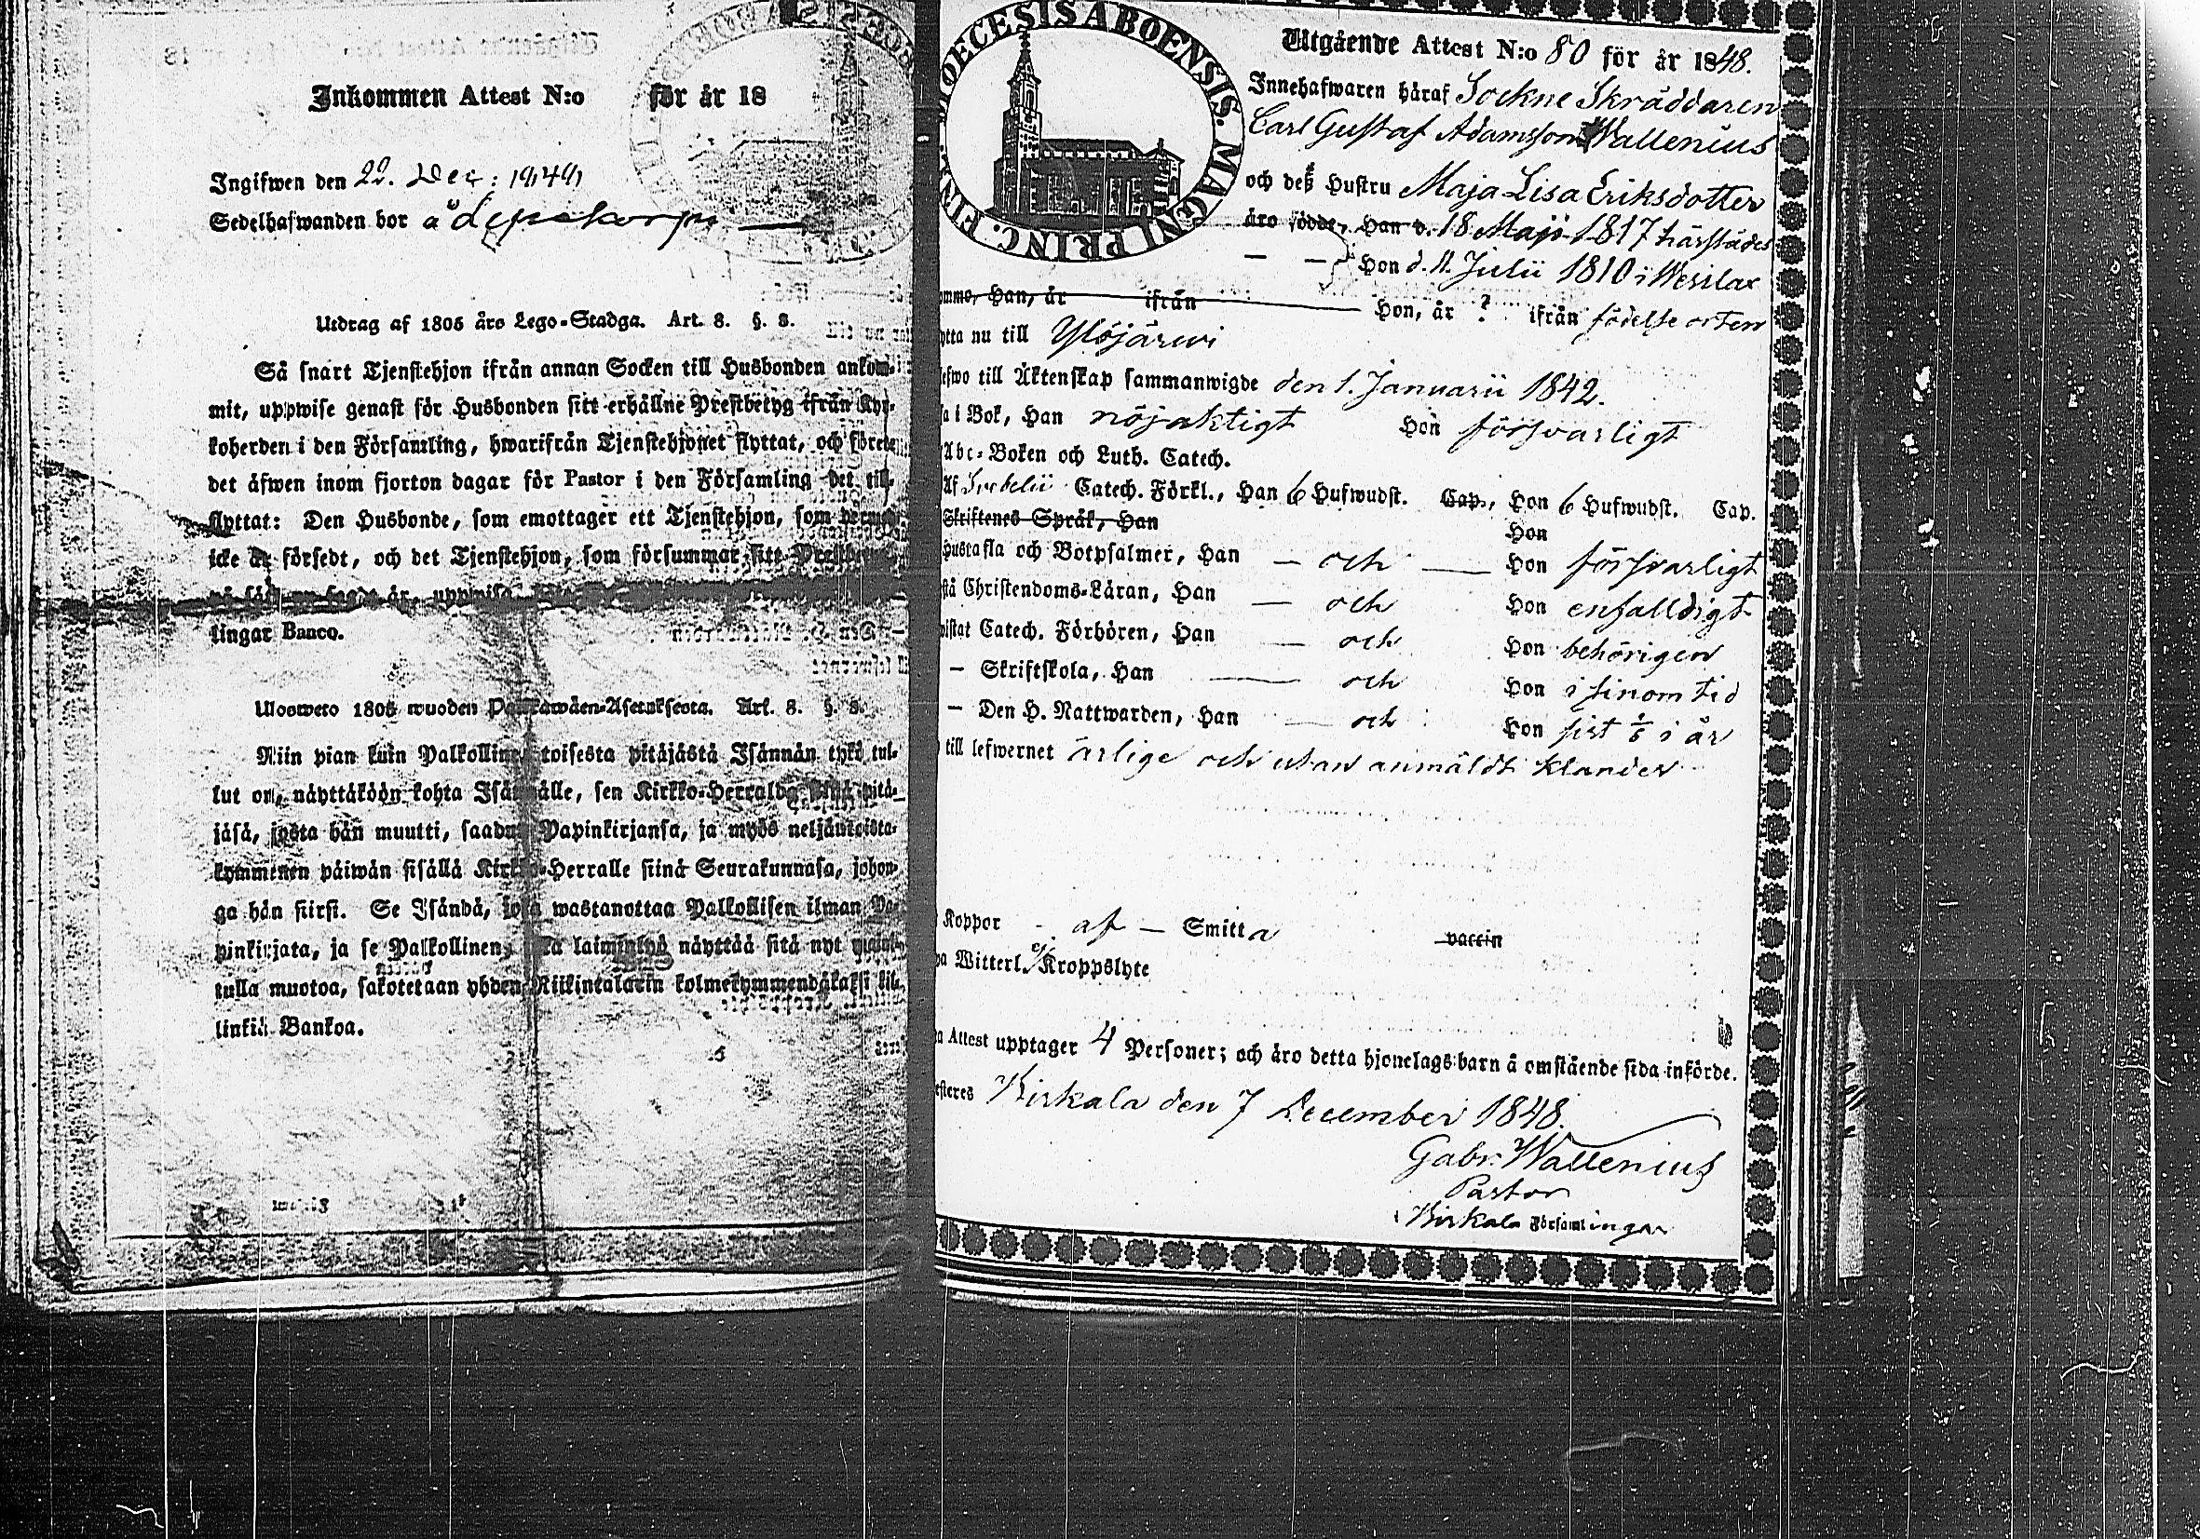 Inkommen Attest N:o för år 18
Ingifwen den 22. Dec:
Sedelhafwanden bor å
Utdrag af 1805 års Lego-Stadga. Art. 8. §. 8.
Så snart Tjenstehjon ifrån annan Socken till Husbonden ankom-
mit, uppwise genast för Husbonden sitt erhållne Prestbetyg ifrån Kyr-
koherden i den Församling, hwarifrån Tjenstehjonet flyttat, och förete
det äfwen inom fjorton dagar för Pastor i den Församling det till-
flyttat: Den Husbonde, som emottager ett Tjenstehjon, som dermed
icke är försedt, och det Tjenstehjon, som försummar sitt
lingar Banco.
Ulosweto 1805 wuoden Palkkawäen-Asetuksesta. Art. 8. §. 8.
Niin pian kuin Palkollinen toisesta pitäjästä Isännän tykö tul-
lut on, näyttäköön kohta Isännälle, sen Kirkko-Herralda siinä pitä-
jäsä, josta hän muutti, saadun Papinkirjansa, ja myös neljäntoista-
kymmenen päiwän sisällä Kirkko-Herralle siinä Seurakunnasa, johon-
ga hän siirsi. Se Isändä, joka wastanottaa Palkollisen ilman Pa-
pinkirjata, ja se Palkollinen, joka laiminlyö näyttää sitä nyt
tulla muotoa, sakotetaan yhden Riikintalarin kolmekymmendäkaksi kil-
linkiä Bankoa.
DIOECESIS ABOENSIS. MAGNI PRINC. FINL.
Utgående Attest N:o 80 för år 1848.
Innehafwaren häraf Sockne Skräddaren
Carl Gustaf Adamsson Wallenius
och deß Hustru Maja Lisa Eriksdotter
äro födde, Han d. 18 Maji 1817 härstädes
— — Hon d. 11. Julii 1810 i Wesilax
Han, år ifrån Hon, år ? ifrån födelse orten
nu till Ylöjärwi
till Äktenskap sammanwigde den 1. Januarii 1842.
i Bok, Han nöjaktigt Hon försvarligt
Abc-Boken och Luth. Catech.
Af Svebelii Catech. Förkl., Han 6 Hufwudst. Cap., Hon 6 Hufwudst. Cap.
Skriftenes Språk, Han Hon
Hustafla och Botpsalmer, Han — och — Hon försvarligt
Christendoms-Läran, Han — och Hon enfalldigt
Catech. Förhören, Han — och Hon behörigen
— Skriftskola, Han — och Hon i sinom tid
— Den H. Nattwarden, Han — och Hon sist i år
till lefwernet ärlige och utan anmäldt klander
Koppor - af — Smitta vaccin
Witterl. Kroppslyte
Attest upptager 4 Personer; och äro detta hjonelags barn å omstående sida införde.
Birkala den 7 December 1848.
Gabr. Wallenius
Pastor
i Birkala Församlingar